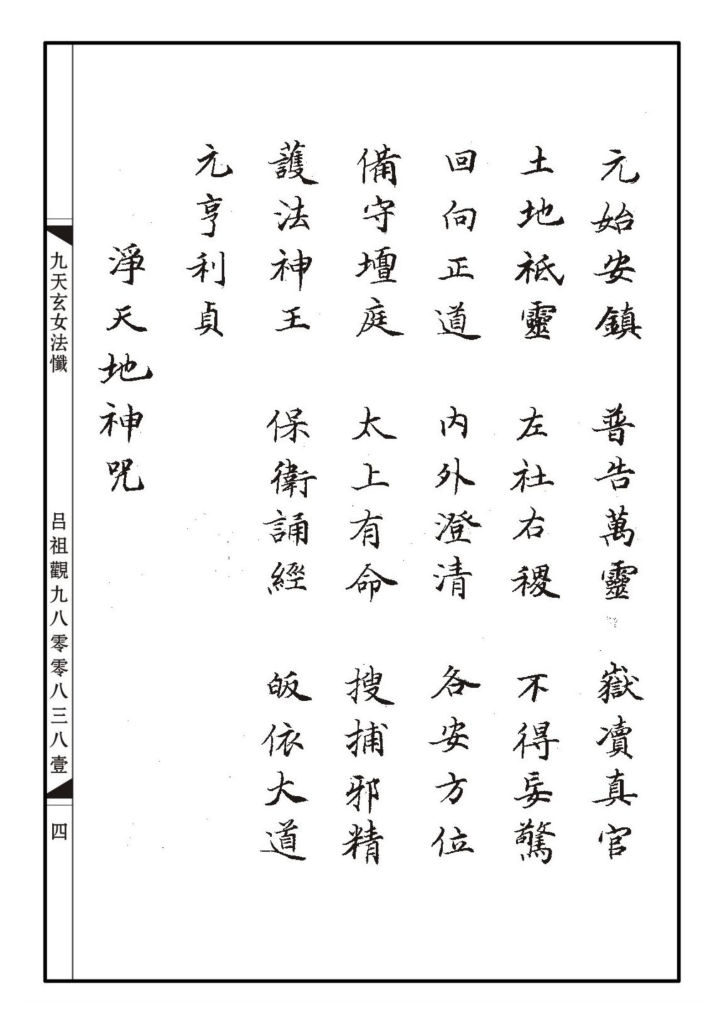 元始安鎮 普告萬靈 嶽瀆真官
土地祇靈 左社右稷 不得妄驚
回向正道 內外澄清 各安方位
備守壇庭 太上有命 搜捕邪精
護法神王 保衛誦經 皈依大道
元亨利貞
淨天地神咒
九天玄女法懺
吕祖觀九八零零八三八壹
四